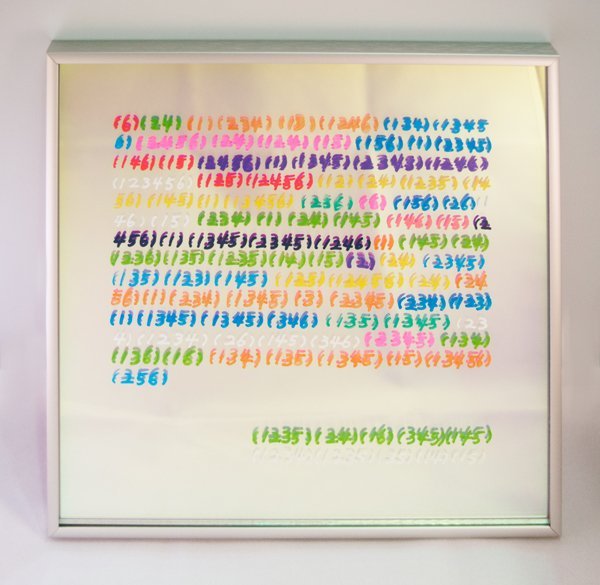 (6)(24) (1)(234) (13)(1246) (134)(1345
6) (2456)(24)(124)(15) (156)(1)(2345)
(146)(15) (2456)(1)(1345)(2345)(1246)
(123456) (125)(12456) (12)(24)(1235)(14
56)(145)(1)(123456) (236) (6)(156)(26)
46)(15) (234)(1)(24)(145) (146)(15) (2
456)(1)(1345)(2345)(1246)(1) (145)(24)
(1236)(135)(1235)(14)(15)(2) (24)(2345)
(135)(123)(145) (125)(12456)(24) (24
56)(1)(234) (1345)(3) (2345) (234)(123)
(1)(1345)(1345)(346) (135)(1345) (123
4)(1236)(26)(145)(346) (2345) (134)
(136)(16) (134)(135)(1345)(15)(13456)
(256)
(1235)(24)(16)(345)(145)
(1234)(1235)(25)(14)(15)